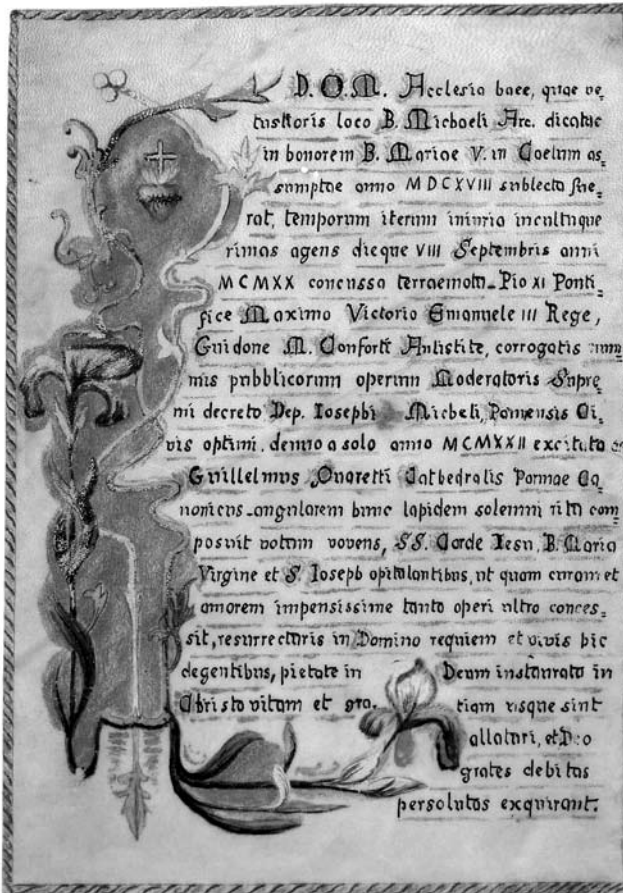 D. O. M. Acclesia haec, quae ve=
tustioris loco B. Michaeli Arc. dicatae
in honorem B. Mariae V. in Coelum as=
sumptae anno MDCXVIII sublecta fue=
rat, temporum iterum iniuria incultuque
rimas agens dieque VIII Septembris anni
MCMXX concussa terraemotu_ Pio XI Ponti=
fice Maximo Victorio Emanuele III Rege,
Guidone M. Conforti Antistite, corrogatis num
mis pubblicorum operum Moderatoris Supre
mi decreto Dep. Iosephi Micheli, Parmensis Ci=
vis optimi. denuo a solo anno MCMXXII excitata
Guillelmus Ohoretti Cathedralis Parmae Ca=
nonicus_angularem hunc lapidem solemni ritu com
posuit votum vovens, SS. Corde Iesu, B. Maria
Virgine et S. Ioseph opitulantibus, ut quam curam et
amorem impensissime tanto operi ultro conces=
sit, resurrecturis in Domino requiem et vivis hic
degentibus, pietate in Deum instaurata in
Christo vitam et gra. tiam usque sint
allaturi, et Deo
grates debitas
persolutas exquirant.